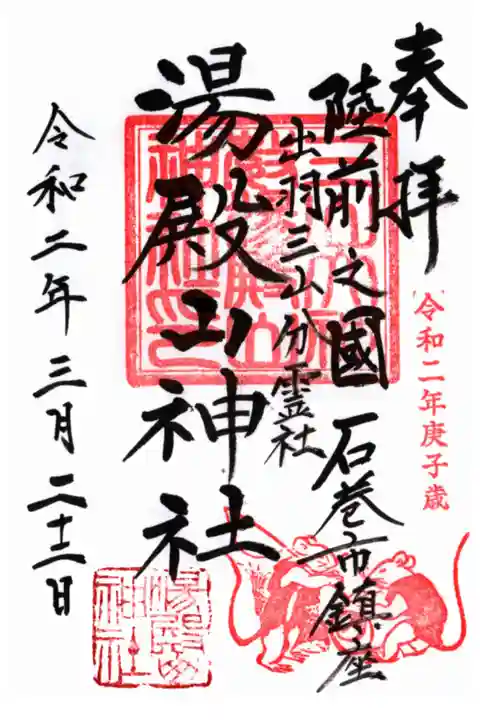 奉拝
令和二年庚子歳
陸前之國 石巻市鎮座
出羽三山分霊社
湯殿山神社
令和二年三月二十二日
湯殿山神社